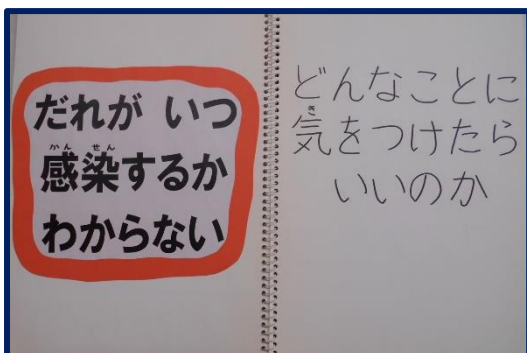 だれが いつ
感染するか
わからない
どんなことに
気をつけたら
いいのか